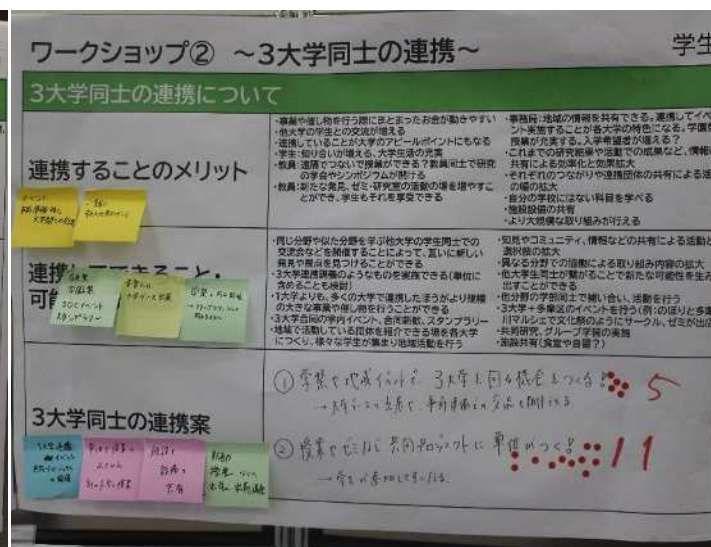 ワークショップ② ～3大学同士の連携～
学生
3大学同士の連携について
連携することのメリット
・事業や催し物を行う際にまとまったお金が動きやすい
・他大学の学生との交流が増える
・連携していることが大学のアピールポイントにもなる
・学生:知り合いが増える、大学生活の充実
・教員:遠隔でつないで授業ができる?教員同士で研究
の学会やシンポジウムが開ける
・教員:新たな発見、ゼミ・研究室の活動の場を増やすこ
とができ、学生もそれを享受できる
・事務局:地域の情報を共有できる。連携してイベ
ント実施することが各大学の特色になる。学園祭
授業が充実する。入学希望者が増える?
・これまでの研究結果や活動での成果など、情報の
共有による効率化と効果拡大
・それぞれのつながりや連携団体の共有による活
の幅の拡大
・自分の学校にはない科目を学べる
・施設設備の共有
・より大規模な取り組みが行える
連携してできること・
可能
・同じ分野や似た分野を学ぶ他大学の学生同士での
交流会などを開催することによって、互いに新しい
発見や視点を見つけることができる
・3大学連携講義のようなものを実施できる(単位に
含めることも検討)
・1大学よりも、多くの大学で連携したほうがより規模
の大きな事業や催し物を行うことができる
・3大学合同の学内イベント、合同新歓、スタンプラリー
・地域で活動している団体を紹介できる場を各大学
につくり、様々な学生が集まり地域活動を行う
・知見やコミュニティ、情報などの共有による活動と
選択肢の拡大
・異なる分野での協働による取り組み内容の拡大
・他大学生同士が繋がることで新たな可能性を生み
出すことができる
・他分野の学部同士で補い合い、活動を行う
・3大学+多摩区のイベントを行う(例:のぼりと多摩
川マルシェで文化祭のようにサークル、ゼミが出店
・共同研究、グループ学習の実施
・施設共有(食堂や自習?)
3大学同士の連携案
① 学祭や地域イベントで 3大学を回る機会をつくる!
5
② 授業やゼミなど 共同プロジェクトに 単位がつく!
11